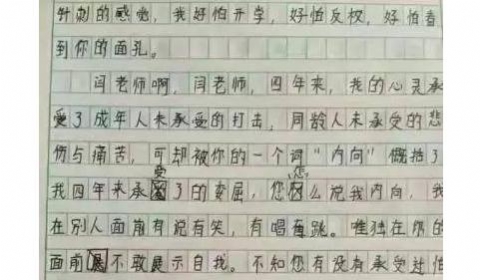 针刺的感觉，我好怕开学，好怕反校，好怕看
到你的面孔。
闫老师啊，闫老师，四年来，我的心灵承
受了成年人未承受的打击，同龄人未承受的悲
伤与痛苦，可却被你的一个词“内向”概括了
我四年来承受了的委屈，您凭什么说我内向，我
在别人面前有说有笑，有唱有跳。唯独在你的
面前不敢展示自我。不知您有没有承受过怕